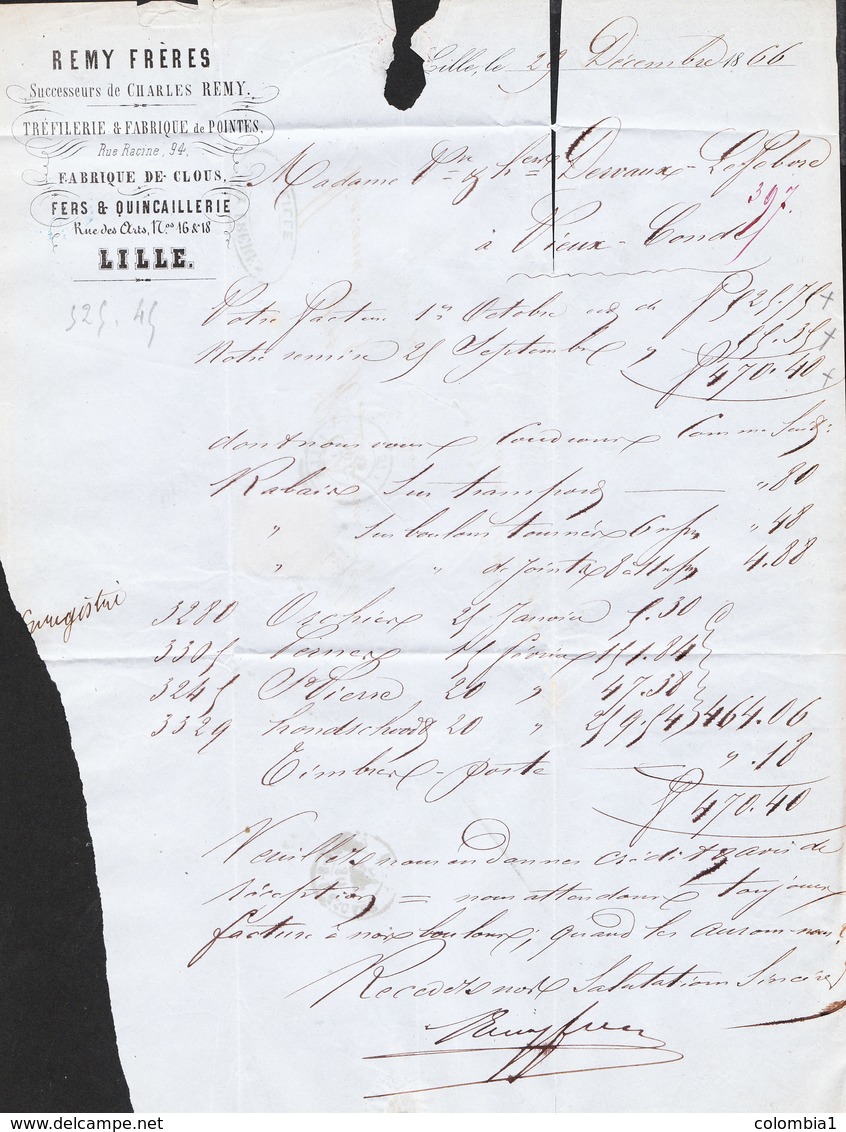 REMY FRÈRES
Successeurs de CHARLES REMY.
TRÉFILERIE & FABRIQUE de POINTES,
Rue Racine, 94,
FABRIQUE DE CLOUS,
FERS & QUINCAILLERIE
Rue des Arts, Nos 16 & 18
LILLE.
Lille, le 29 Décembre 1866
Madame Dervaux-Lefebvre
397.
à Vieux-Condé
325.45
Votre facture 1er Octobre de f 525.75
Notre remise 25 Septembre " 55.35
f 470.40
dont nous vous Comme Suit:
Rabais sur transport — " 80
" sur boulons tournés " 48
" " 4.88
Enregistré
3280 Orchies 25 Janvier 5.30
3305 15 février 151.84
3245 St Pierre 20 " 47.38
3329 hondschoote 20 " 259.54 464.06
Timbres-poste — " .18
f 470.40
Veuillez nous en donner crédit & avis de
réception = nous attendons toujours
facture à nos boulons, quand les aurons-nous?
Recevez nos Salutations Sincères
Remy frères
colombia1